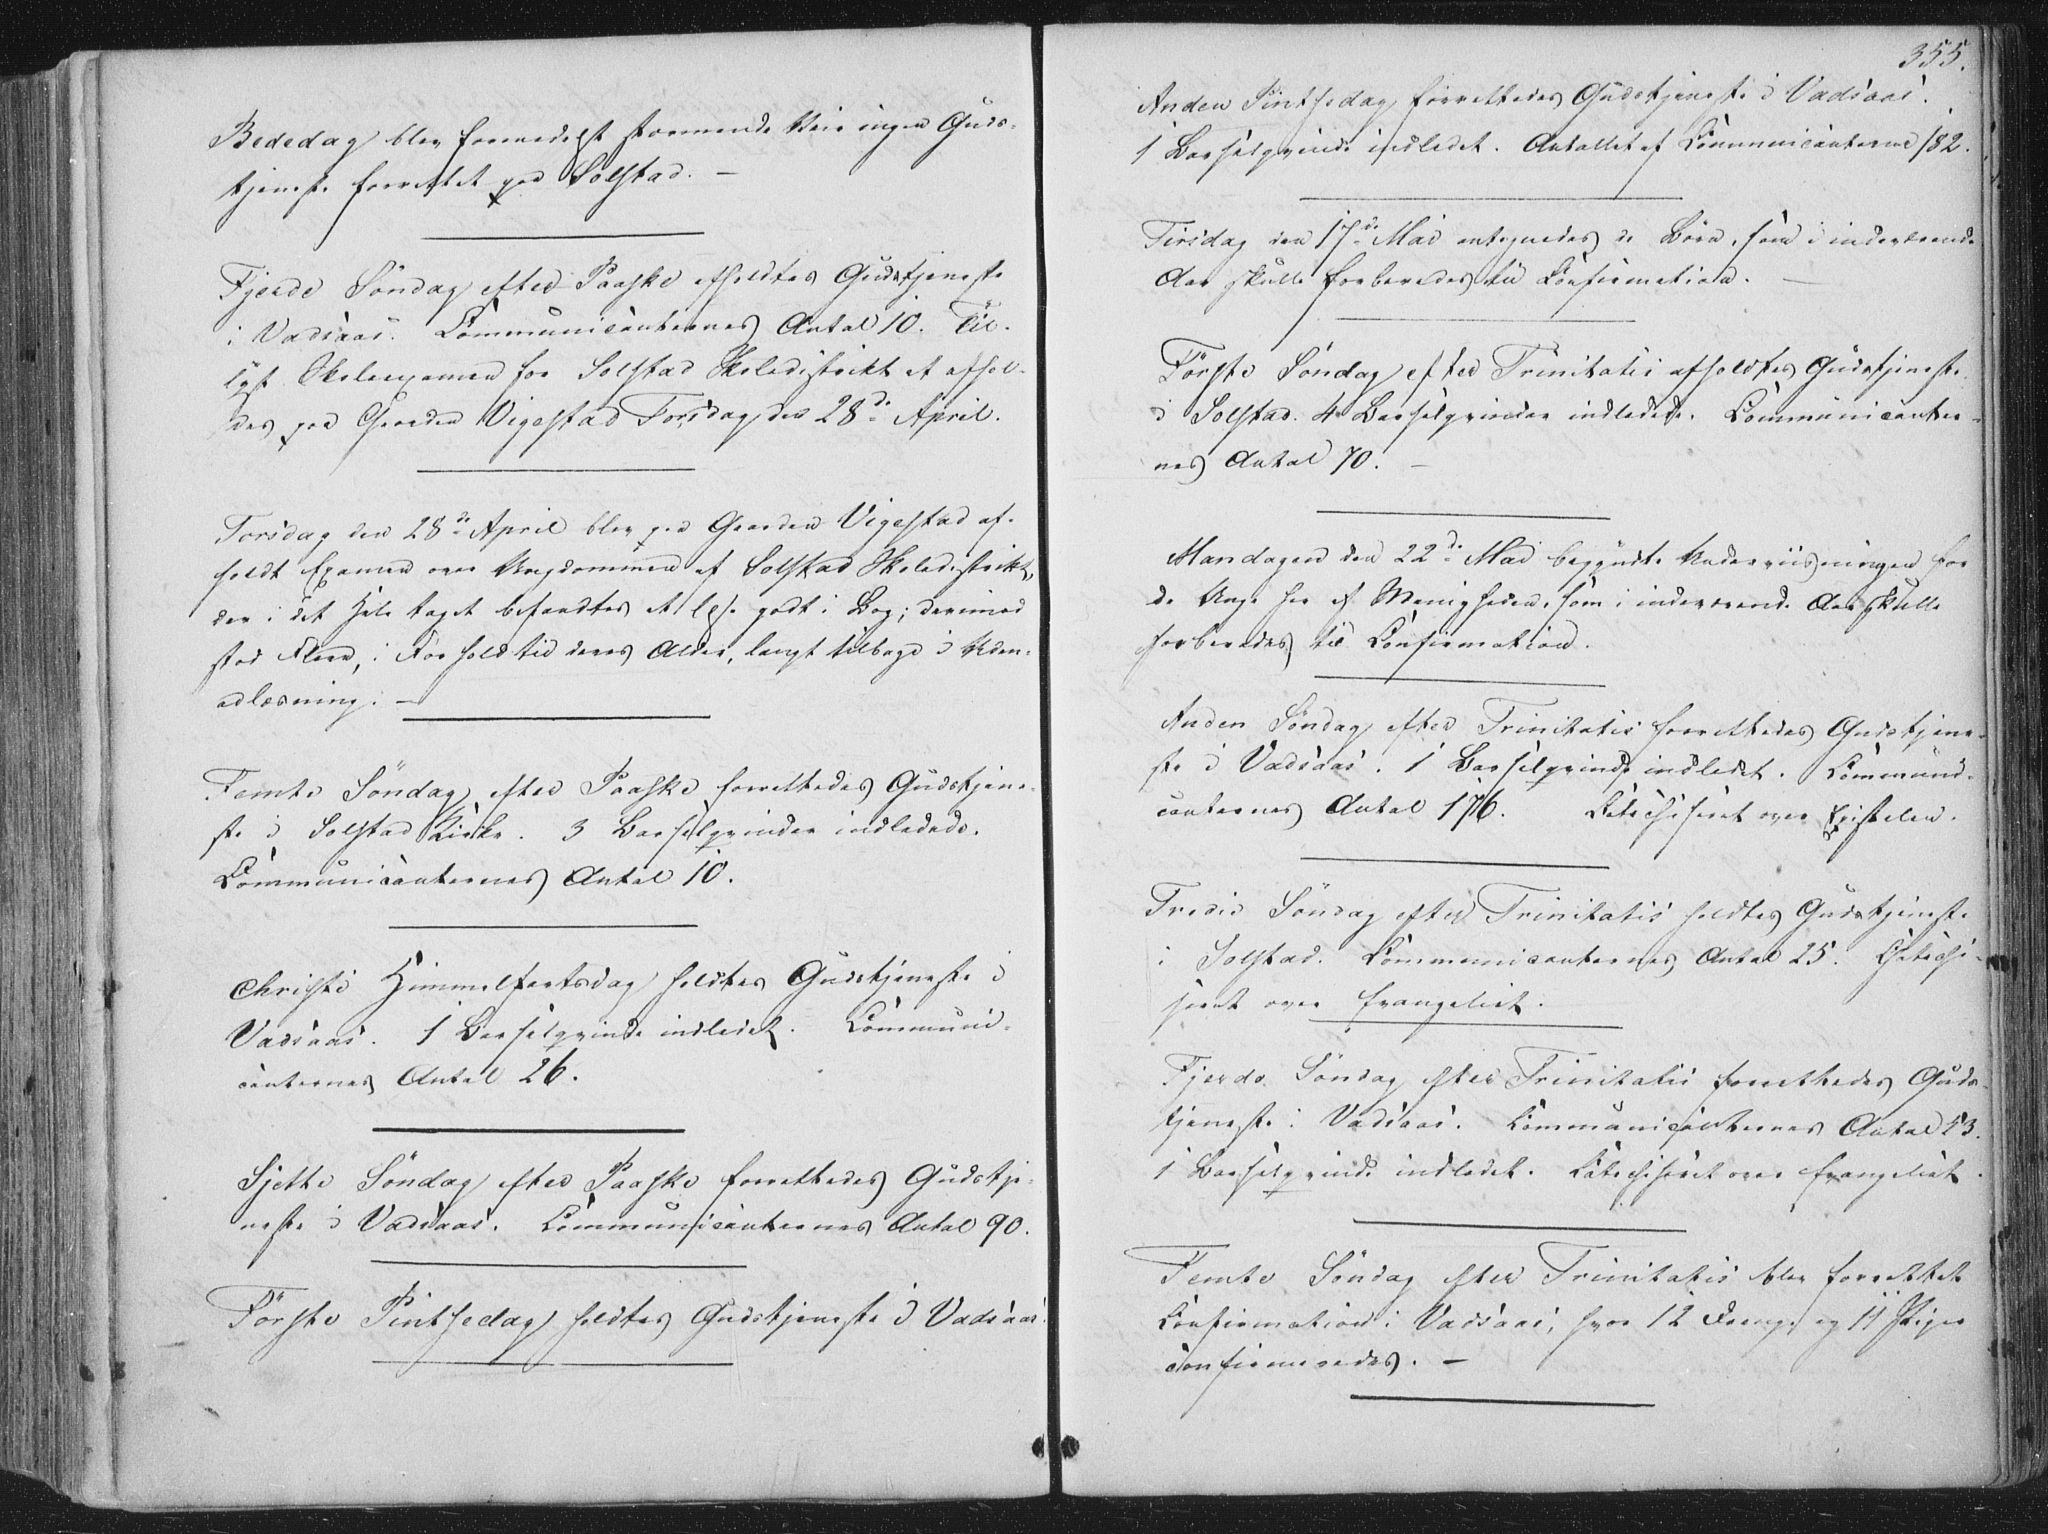 Bededag blev formedelst stormende Veir ingen Guds-
tjeneste forrettet paa Solstad. —
Fjerde Söndag efter Paaske afholdtes Gudstjeneste
i Vadsaas. Communicanternes Antal 10. Til-
lyst Skoleexamen for Solstad Skoledistrikt at afhol-
des paa Gaarden Vigestad Torsdag den 28de April.
Torsdag den 28de April blev paa Gaarden Vigestad af-
holdt Examen over Ungdommen af Solstad Skoledistrikt,
der i det Hele taget befandtes at læse godt i Bog; derimod
stod Flere, i Forhold til deres Alder, langt tilbage i Uden-
adlæsning. —
Femte Söndag efter Paaske forrettedes Gudstjene-
ste i Solstad Kirke. 3 Barselqvinder indledede.
Communicanternes Antal 10.
Christi Himmelfartsdag holdtes Gudstjeneste i
Vadsaas. 1 Barselqvinde indledet. Communi-
canternes Antal 26.
Sjette Söndag efter Paaske forrettedes Gudstje-
neste i Vadsaas. Communicanternes Antal 90.
Förste Pintsedag holdtes Gudstjeneste i Vadsaas.
355.
Anden Pintsedag forrettedes Gudstjeneste i Vadsaas.
1 Barselqvinde indledet. Antallet af Communicanterne 182.
Tirsdag den 17de Mai antegnedes de Börn, som i indeværende
Aar skulle forberedes til Confirmation. —
Förste Söndag efter Trinitatis afholdtes Gudstjeneste
i Solstad. 4 Barselqvinder indledede. Communicanter-
nes Antal 70. —
Mandagen den 22de Mai begyndte Underviisningen for
de Unge her af Menigheden, som i indeværende Aar skulle
forberedes til Confirmation.
Anden Söndag efter Trinitatis forrettedes Gudstjene-
ste i Vadsaas. 1 Barselqvinde indledet. Communi-
canternes Antal 176. Catechiseret over Epistelen.
Tredie Söndag efter Trinitatis holdtes Gudstjeneste
i Solstad. Communicanternes Antal 25. Catechi-
seret over Evangeliet.
Fjerde Söndag efter Trinitatis forrettedes Guds-
tjeneste i Vadsaas. Communicanternes Antal 53.
1 Barselqvinde indledet. Catechiseret over Evangeliet.
Femte Söndag efter Trinitatis blev forrettet
Confirmation i Vadsaas, hvor 12 Drenge og 11 Piger
confirmeredes. —